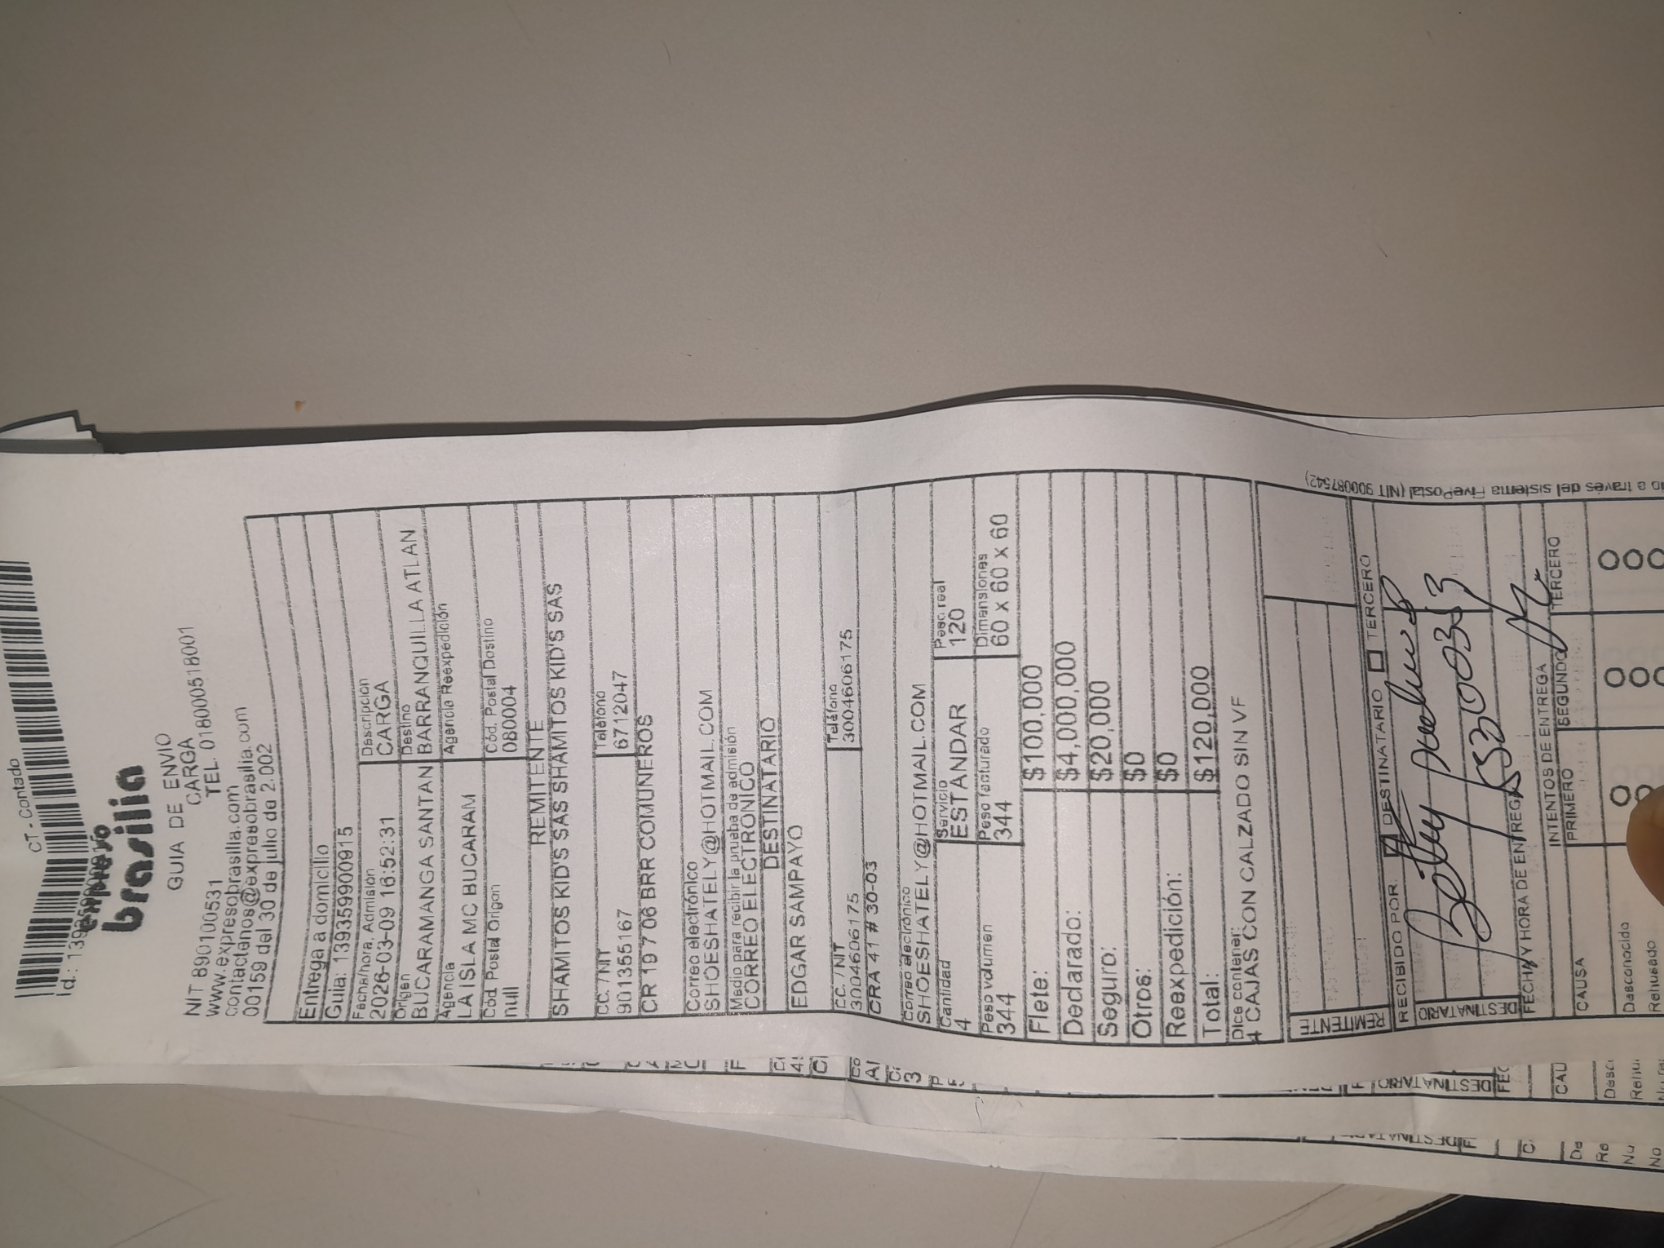 CT - Contado
Id.:
expreso
brasilia
GUIA DE ENVIO
CARGA
NIT 890100531
TEL. 018000518001
www.expresobrasilia.com
contactenos@expresobrasilia.com
00159 del 30 de julio de 2.002
Entrega a domicilio
Guia: 1393599000915
Fecha/hora. Admisión
2026-03-09 16:52:31
Descripción
CARGA
Origen
BUCARAMANGA SANTAN
Destino
BARRANQUILLA ATLAN
Agencia
LA ISLA MC BUCARAM
Agencia Reexpedición
Cód. Postal Origen
null
Cód. Postal Destino
080004
REMITENTE
SHAMITOS KID'S SAS SHAMITOS KID'S SAS
CC. / NIT
901355167
Teléfono
6712047
CR 19 7 06 BRR COMUNEROS
Correo electrónico
SHOESHATELY@HOTMAIL.COM
Medio para recibir la prueba de admisión
CORREO ELECTRÓNICO
DESTINATARIO
EDGAR SAMPAYO
CC. / NIT
3004606175
Teléfono
3004606175
CRA 41 # 30-03
Correo electrónico
SHOESHATELY@HOTMAIL.COM
Cantidad
4
Servicio
ESTANDAR
Peso real
120
Peso volumen
344
Peso facturado
344
Dimensiones
60 x 60 x 60
Flete: $100,000
Declarado: $4,000,000
Seguro: $20,000
Otros: $0
Reexpedición: $0
Total: $120,000
Dice contener:
4 CAJAS CON CALZADO SIN VF
REMITENTE
DESTINATARIO
RECIBIDO POR: DESTINATARIO TERCERO
FECHA Y HORA DE ENTREGA
INTENTOS DE ENTREGA
PRIMERO SEGUNDO TERCERO
CAUSA
Desconocido
Rehusado
a traves del sistema FivePostal (NIT 900087542)